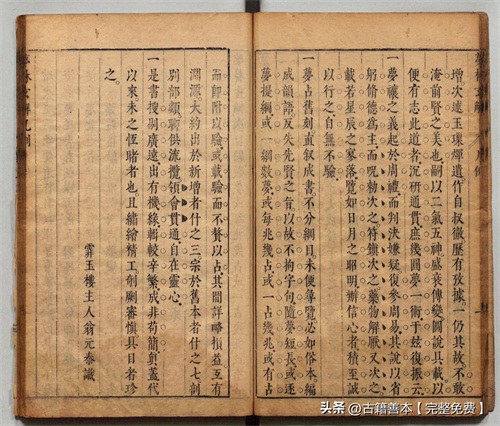 增次逵玉璨煇遺作自叔徹歷有攷據一仍其故不敢
淹前賢之美也嗣以二氣五神盛衰傳變圖說具載以
便有志此道者沉研遺貫庶幾圓夢一術于茲復振云
一夢禳之義起於周禮而判決嫌疑復參周易其說以省
躬脩德為主而呪勑次之符鎮次之藥物解厭又次之
載若星辰之森落覽如日月之昭明辦信心者積至誠
以行之自無不驗
一夢占舊刻直敘成書不分綱目未便尋覽必如俗本編
成韻語反失先賢之旨以故不拘字句隨夢短長或逐
夢提綱或一綱數夢或每兆幾占或一占幾兆或有占
而即附以驗或載驗而不贅以占其間詳略損益互有
淵源大約出於新增者什之三宗於舊本者什之七剖
別部類聊供流攬領會貫通自在靈心
一是書搜剔廣遠出有機線輯較辛繁成非苟簡剪蓋代
以來未之恆睹者也且繡繪精工剞劂審慎具目者珍
之
霏玉樓主人翁元泰識
夢林玄解
凡例
头条 @古籍善本【完整免费】